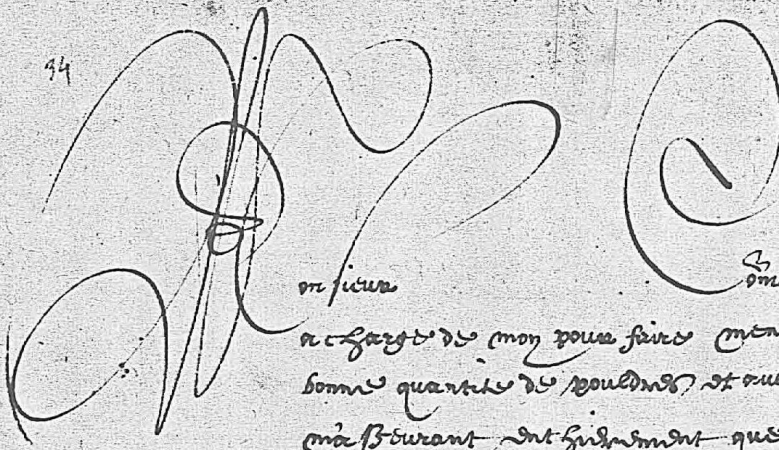 94
Monsieur Com
a charge de moy pour faire men
bonne quantite de pouldres et au
m'asseurant enthierement que